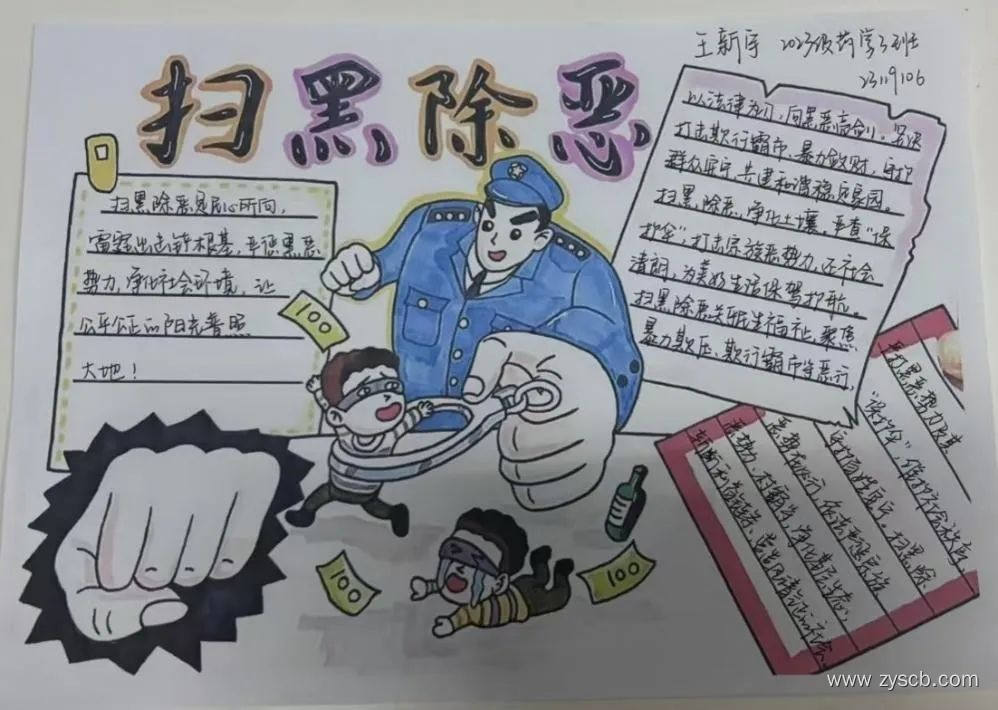 王新宇 2023级药学3班
23119106
扫黑除恶
扫黑除恶是民心所向，
雷霆出击铲根基，严惩黑恶
势力，净化社会环境，让
公平公正的阳光普照
大地！
以法律为刃，向黑恶亮剑。坚决
打击欺行霸市、暴力敛财，守护
群众安宁，共建和谐稳定家园。
扫黑除恶，净化土壤，严查“保
护伞”，打击宗族恶势力，还社会
清朗，为美好生活保驾护航。
扫黑除恶关乎民生福祉，聚焦
暴力欺压、欺行霸市等恶行，
严打黑恶势力及其
“保护伞”，维护社会秩序，
守护百姓安宁。扫黑除
100
100
100
www.zyscb.com